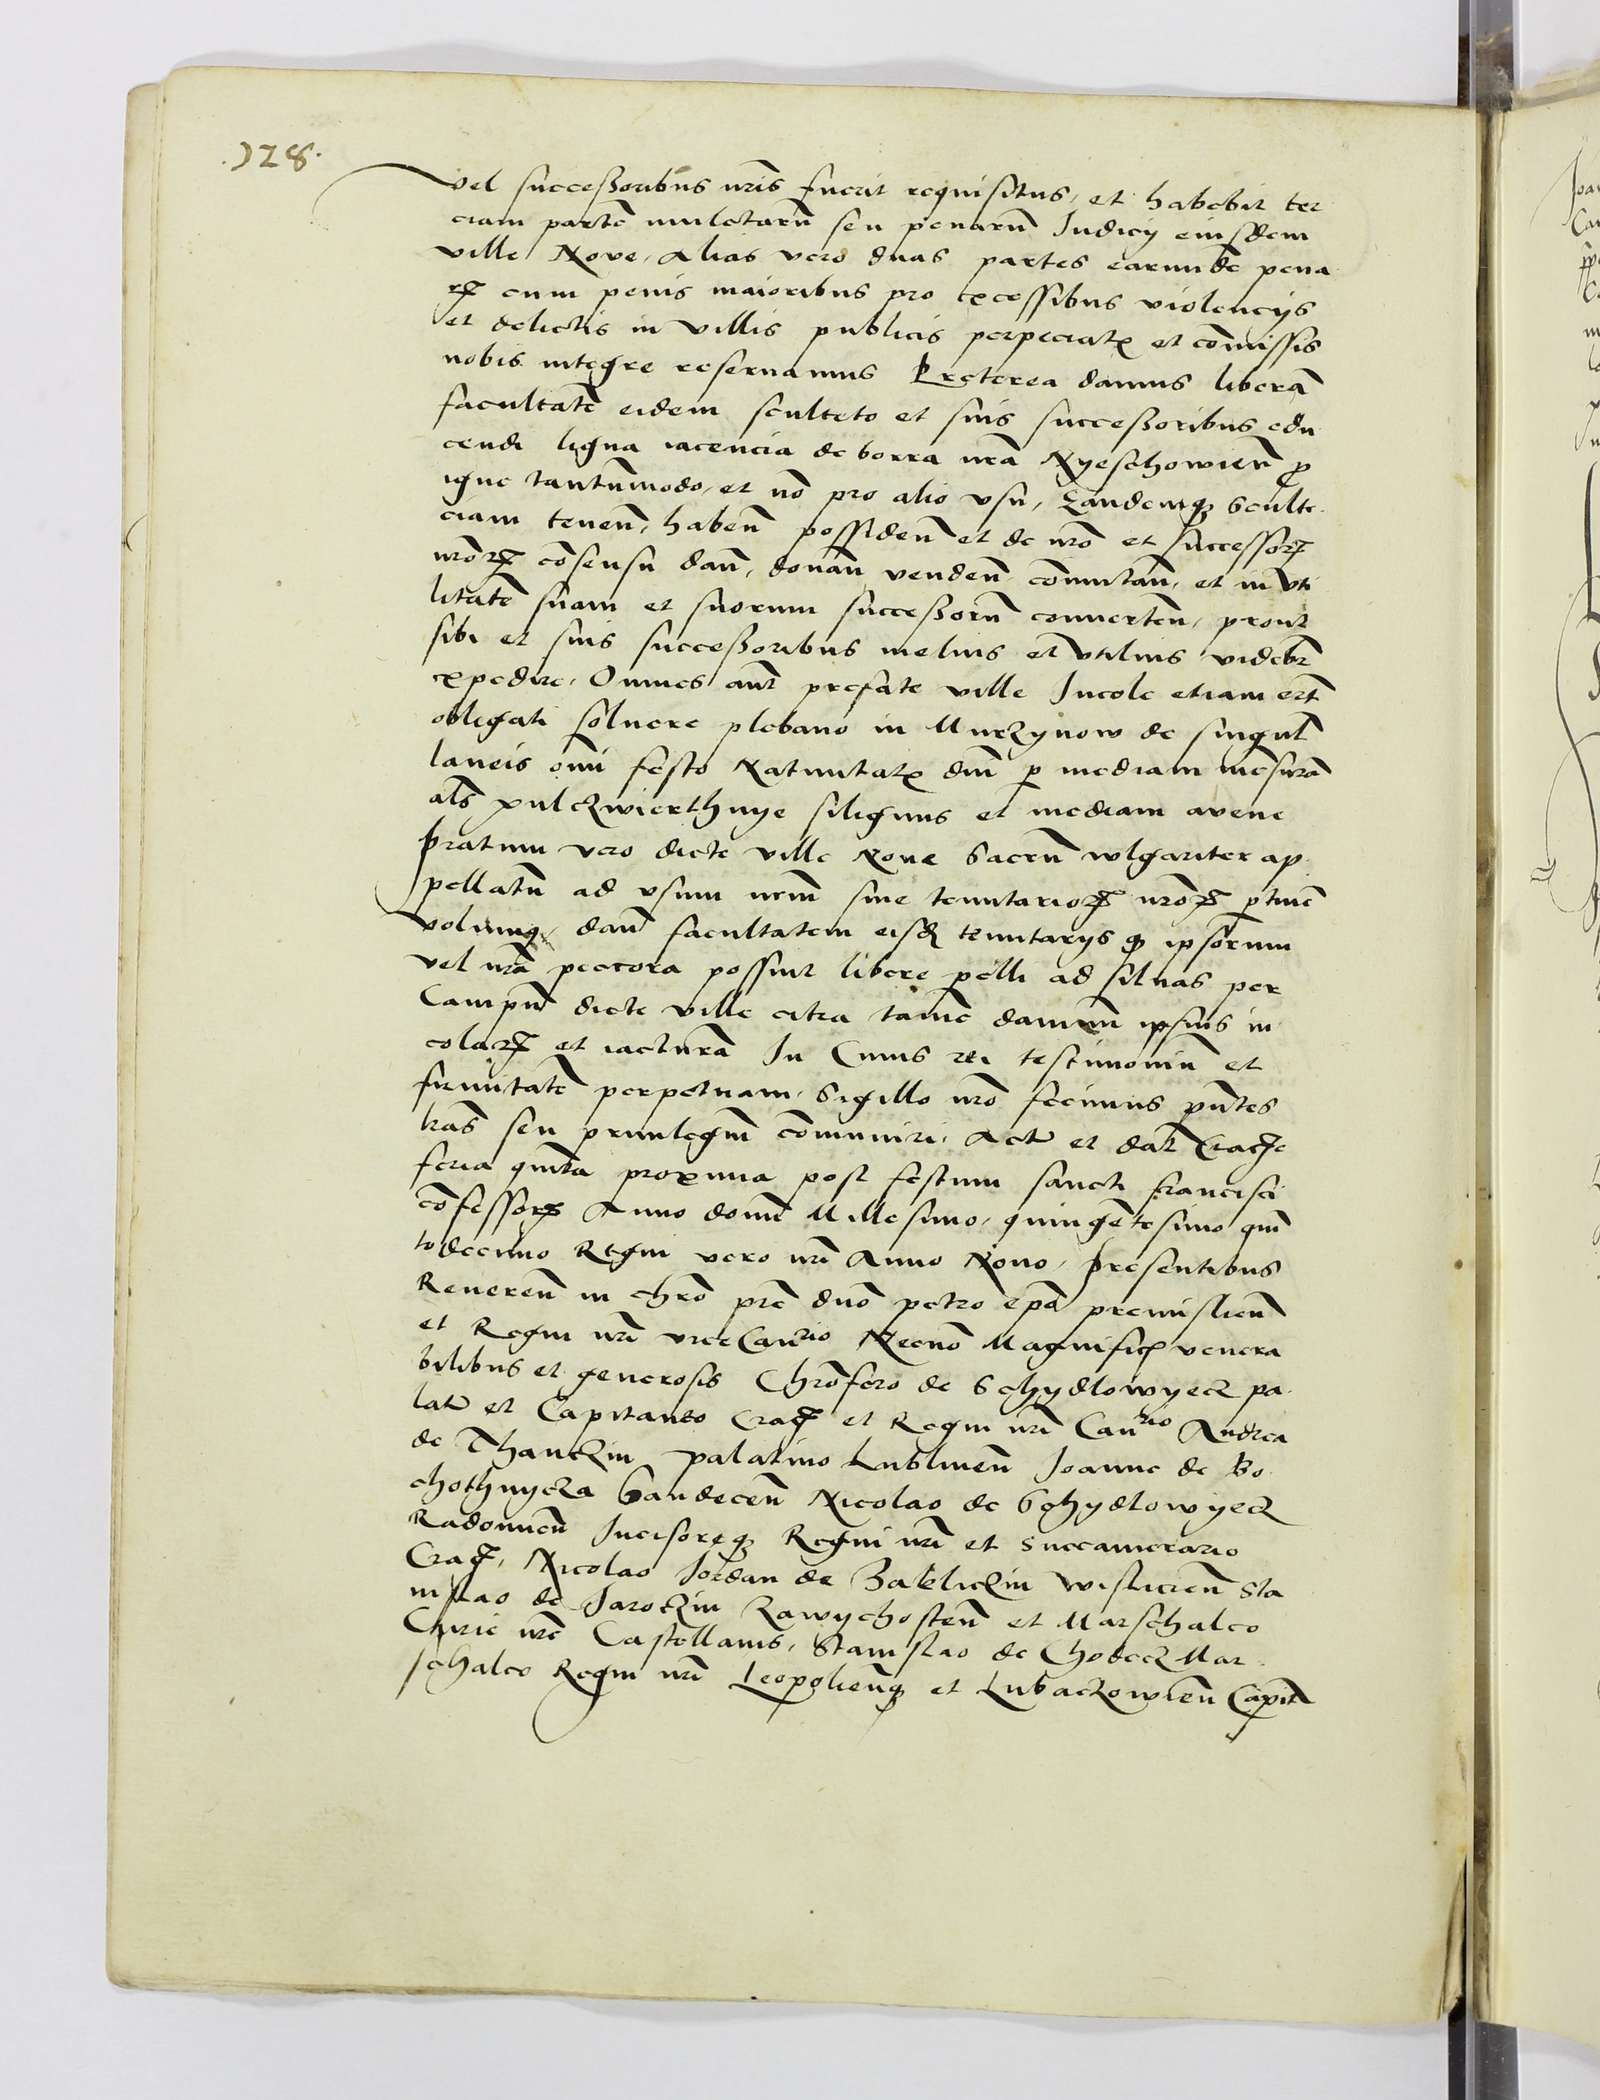 .128.
vel succeßoribus nr̃is fuerit requisitus, et habebit ter
ciam partẽ mulctarũ seu penarũ Iudicij eiusdem
ville Nove, Alias vero duas partes earundẽ pena
rꝝ cum penis maioribus pro excessibus violencijs
et delictis in villis publicis perpetratꝭ et com̃issis
nobis integre reseruamus Preterea damus liberã
facultatẽ eidem sculteto et suis succeßoribus edu
cendi ligna iacencia de borra nr̃a Nyeschowieñ ꝓ
igne tantũmodo, et nõ pro alio vsu, Eandemqꝫ Sculte
ciam teneñ, habeñ possideñ et de nr̃o et successorꝝ
nr̃orꝝ cõsensu dañ, donañ vendeñ com̃utañ, et in vti
litatẽ suam et suorum succeßorũ conuerteñ, prout
sibi et suis succeßoribus melius et vtilius videbr̃
expedire, Omnes aut̃ prefate ville Incole etiam er̃t
obligati soluere plebano in Murzynow de singul̃
laneis om̃i festo Natiuitatꝭ dñi ꝑ mediam mesurã
al̃s pulczwierthnye siliginis et mediam avene
Pratum vero dicte ville Noue Sacrũ wlgariter ap
pellatũ ad vsum nr̃m siue tenutariorꝝ nr̃orꝝ ꝑtinẽ
volumꝰ, dañ facultatem eisdẽ tenutarijs ꝙ ipsorum
vel nr̃a peccora possint libere pelli ad siluas per
Campũ dicte ville citra tamẽ damnũ ipsius in
colarꝝ et iacturã In Cuius rei testimoniũ et
firmitatẽ perpetuam, Sigillo nr̃o fecimus pñtes
lr̃as seu priuilegiũ com̃uniri, Actũ et dat̃ Cracꝫe
feria quinta proxima post festum sancti francisci
cõfessorꝭ Anno domĩ Millesimo, quingẽtesimo quin
todecimo Regni vero nr̃i Anno Nono, Presentibus
Reuereñ in chr̃o pr̃e dño petro ep̃o premislieñ
et Regni nr̃i viceCanrio Necnõ Magnificꝭ venera
bilibus et generosis Chrõfero de Schydlowyecz pa
latĩ et Capitaneo Cracꝝ et Regni nr̃i Canrio Andrea
de Thanczin palatino Lublineñ Joanne de Bo
chothnycza Sandeceñ Nicolao de Schydlowyecz
Radomieñ Incisoreqꝫ Regni nr̃i et Succamerario
Cracꝝ, Nicolao Jordan de Zakliczin wisliceñ Sta
nislao de Jaroczin Zawychosteñ et Marschalco
Curie nr̃e Castellanis, Stanislao de Chodecz Mar
schalco Regni nr̃i Leopolieñqꝫ et Lubaczowieñ Capit̃